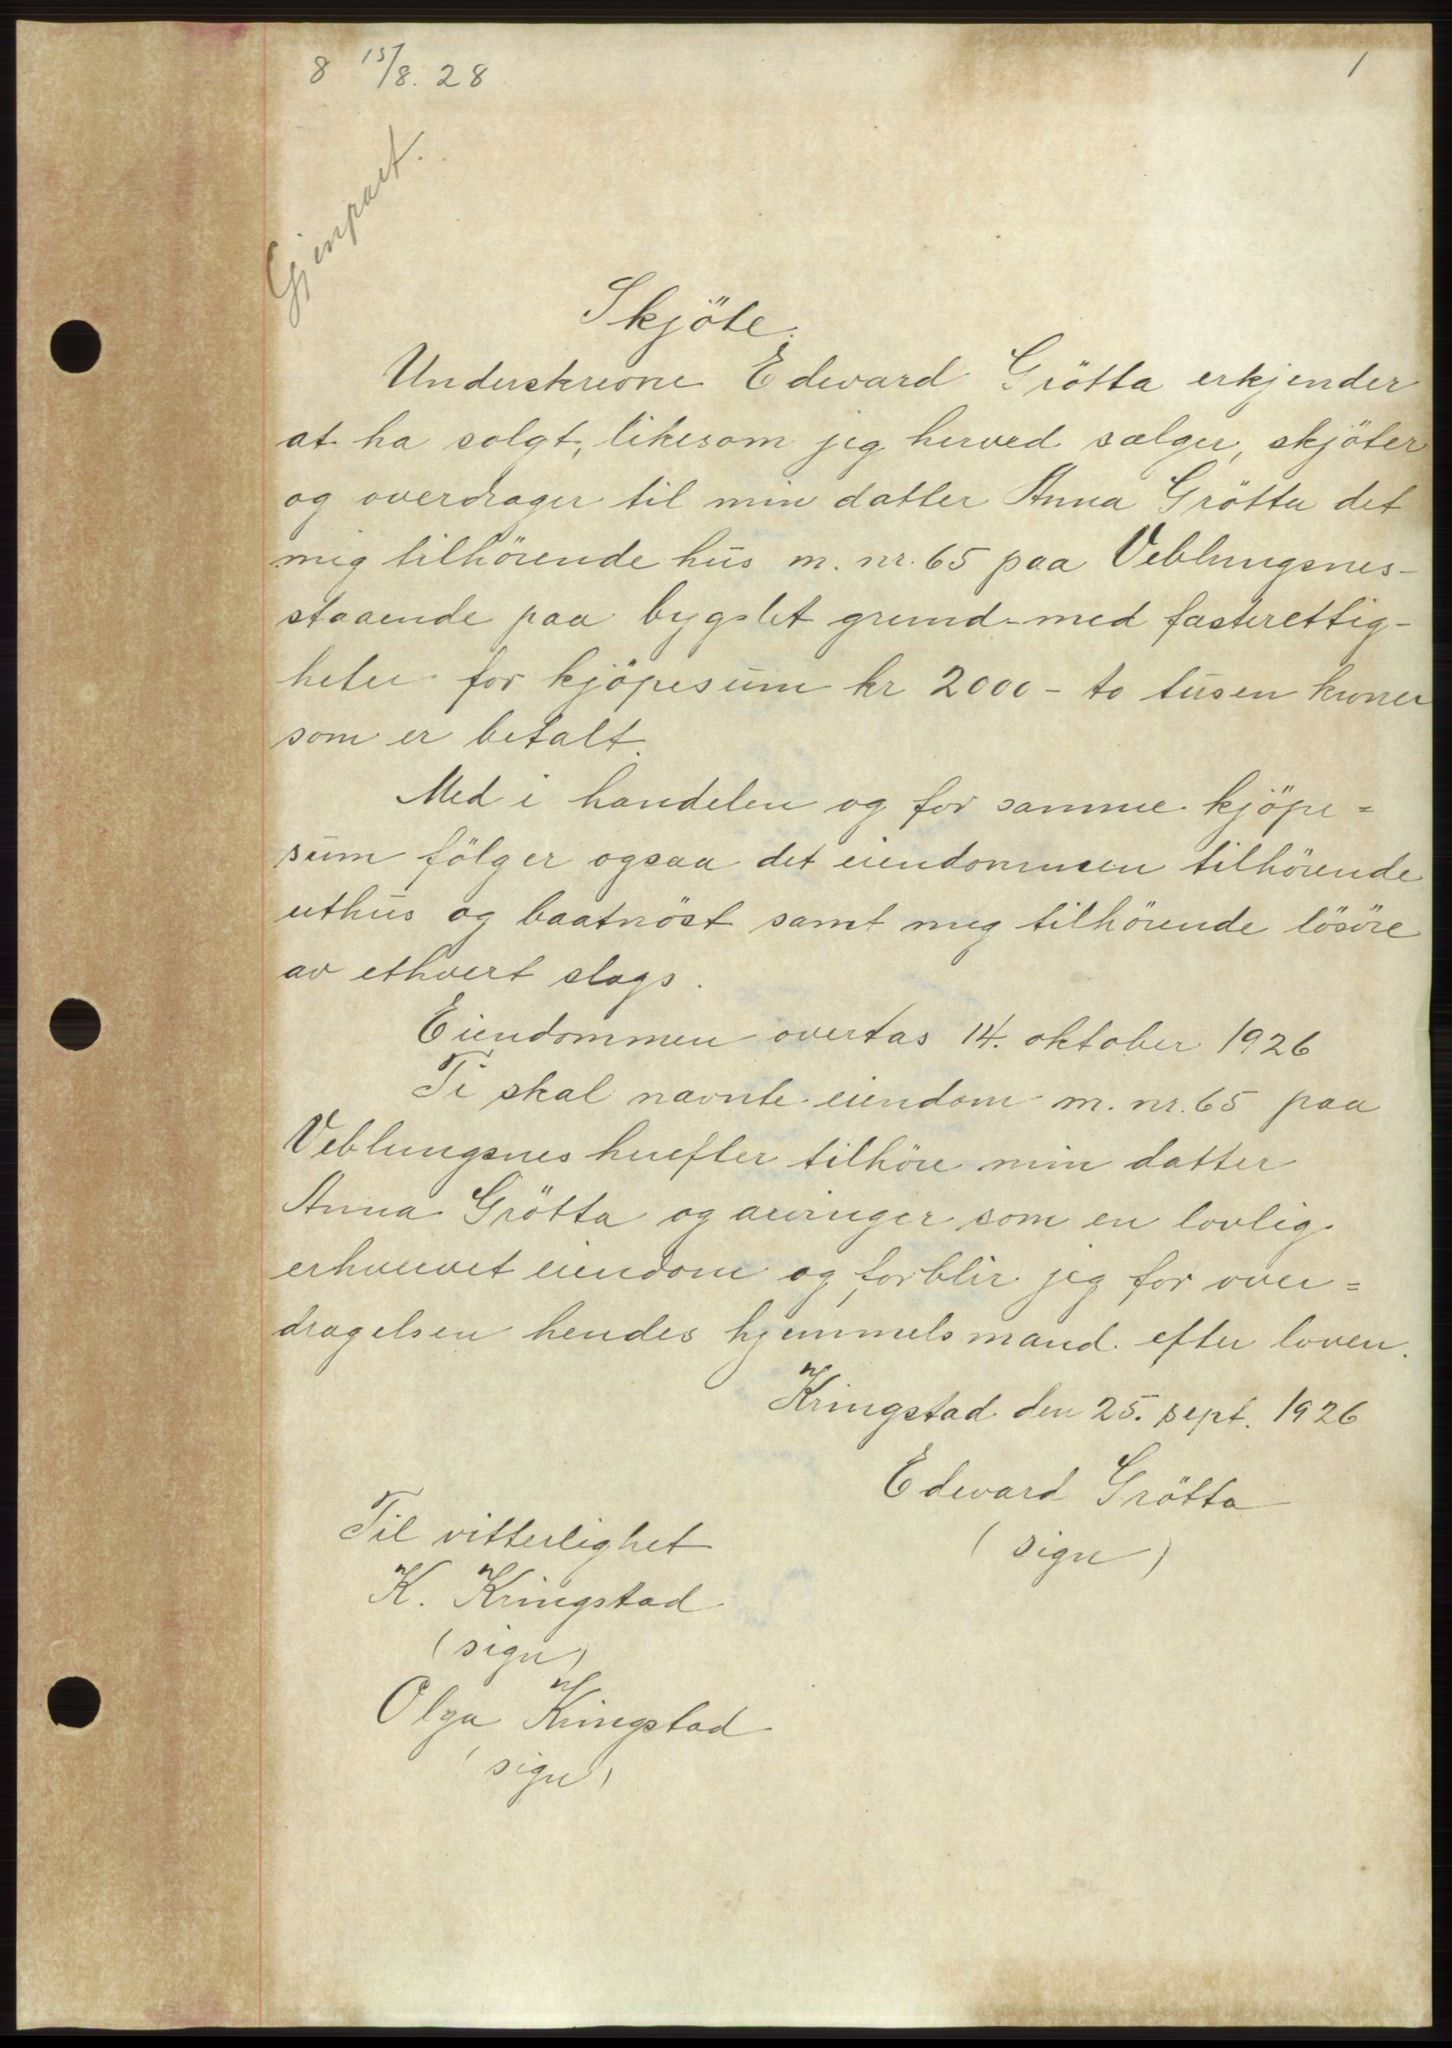 8 15/8. 28
1
Gjenpart.
Skjöte.
Underskrevne Edward Grötta erkjender
at ha solgt, likesom jeg herved sælger, skjöter
og overdrager til min datter Anna Grötta det
mig tilhörende hus m. nr. 65 paa Veblungsnes-
staaende paa bygslet grund - med fasterettig-
heter for kjöpesum kr 2000 - to tusen kroner
som er betalt.
Med i handelen og for samme kjöpe=
sum fölger ogsaa det eiendommen tilhörende
uthus og baatnöst samt meg tilhörende lösöre
av ethvert slags.
Eiendommen overtas 14. oktober 1926
Ti skal navnte eiendom m. nr. 65 paa
Veblungsnes herefter tilhöre min datter
Anna Grötta og arvinger som en lovlig
erhvervet eiendom og forblir jeg for over=
dragelsen hendes hjemmelsmand efter loven.
Kringstad den 25. sept. 1926
Edward Grötta
(sign)
Til vitterlighet
K. Kringstad
(sign)
Olga Kringstad
(sign)